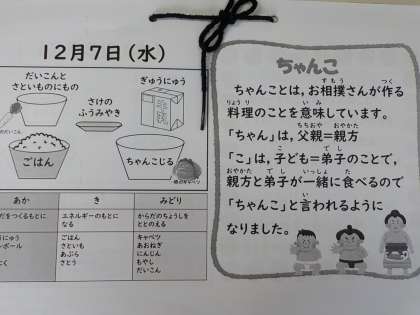 12月7日(水)
だいこんと
さといものにもの
ぎゅうにゅう
さけの
ふうみやき
ごはん
ちゃんこじる
あか
き
みどり
だをつくるもとに
エネルギーのもとに
なる
からだのちょうしを
ととのえる
ごはん
さといも
あぶら
さとう
キャベツ
あおねぎ
にんじん
もやし
だいこん
ちゃんこ
ちゃんことは、お相撲さんが作る
料理のことを意味しています。
「ちゃん」は、父親=親方
「こ」は、子ども=弟子のことで、
親方と弟子が一緒に食べるので
「ちゃんこ」と言われるように
なりました。